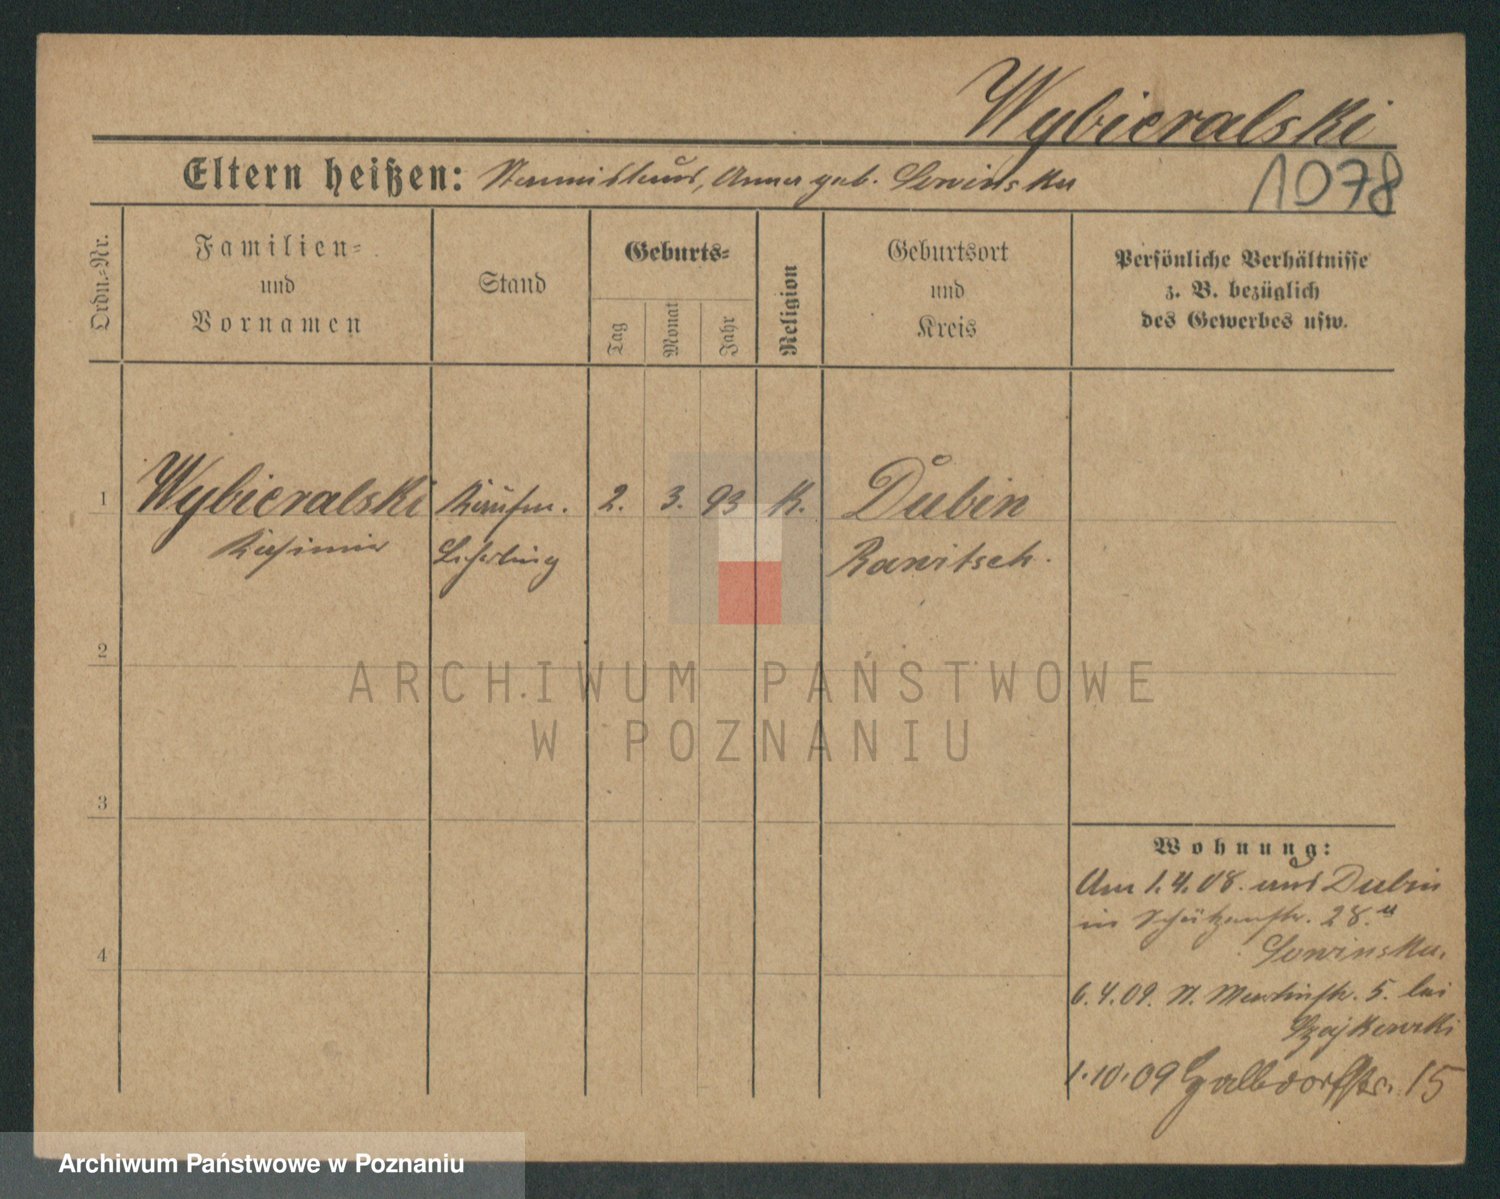 Wybieralski
1078
Eltern heißen: Stanislaus, Anna geb. Sowinska
Ordn.-Nr.
Familien-
und
Vornamen
Stand
Geburts-
Tag
Monat
Jahr
Religion
Geburtsort
und
Kreis
Persönliche Verhältnisse
z. B. bezüglich
des Gewerbes usw.
1 Wybieralski Kaufm. 2. 3. 93 K. Dubin
Kasimir Lehrling Rawitsch.
2
3
4
Wohnung:
Am 1.4.08. aus Dubin
in Schützenstr. 28.
Sowinska.
6.4.09. St. Martinstr. 5. bei
Szajkowski
1.10.09 15
ARCHIWUM PAŃSTWOWE
W POZNANIU
Archiwum Państwowe w Poznaniu